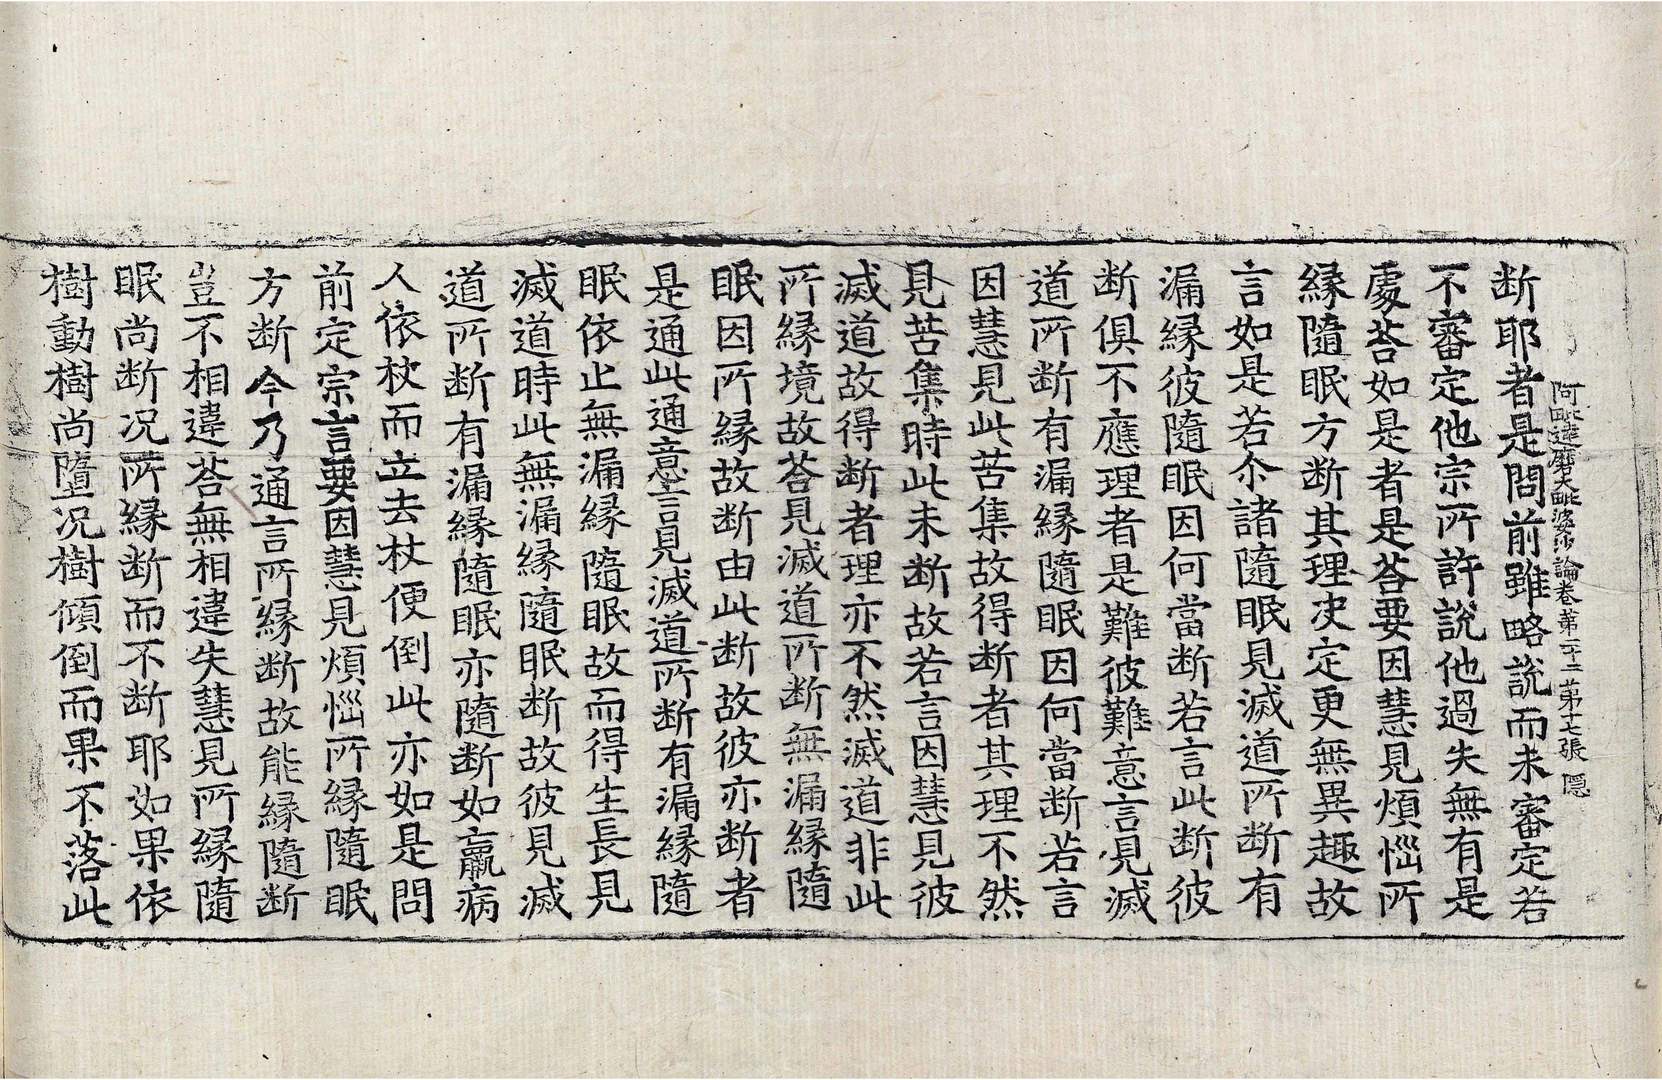 阿毗達磨大毗婆沙論卷第二十二 第十七張 隱
断耶者是問前雖略說而未審定若
不審定他宗所許說他過失無有是
處荅如是者是荅要因慧見煩惱所
縁隨眠方断其理决定更無異趣故
言如是若尒諸隨眠見滅道所断有
漏縁彼隨眠因何當断若言此断彼
断俱不應理者是難彼難意言見滅
道所断有漏縁隨眠因何當断若言
因慧見此苦集故得断者其理不然
見苦集時此未断故若言因慧見彼
滅道故得断者理亦不然滅道非此
所縁境故荅見滅道所断無漏縁隨
眠因所縁故断由此断故彼亦断者
是通此通意言見滅道所断有漏縁隨
眠依止無漏縁隨眠故而得生長見
滅道時此無漏縁隨眠断故彼見滅
道所断有漏縁隨眠亦隨断如羸病
人依杖而立去杖便倒此亦如是問
前定宗言要因慧見煩惱所縁隨眠
方断今乃通言所縁断故能縁隨断
豈不相違荅無相違失慧見所縁隨
眠尚断况所縁断而不断耶如果依
樹動樹尚墮况樹傾倒而果不落此